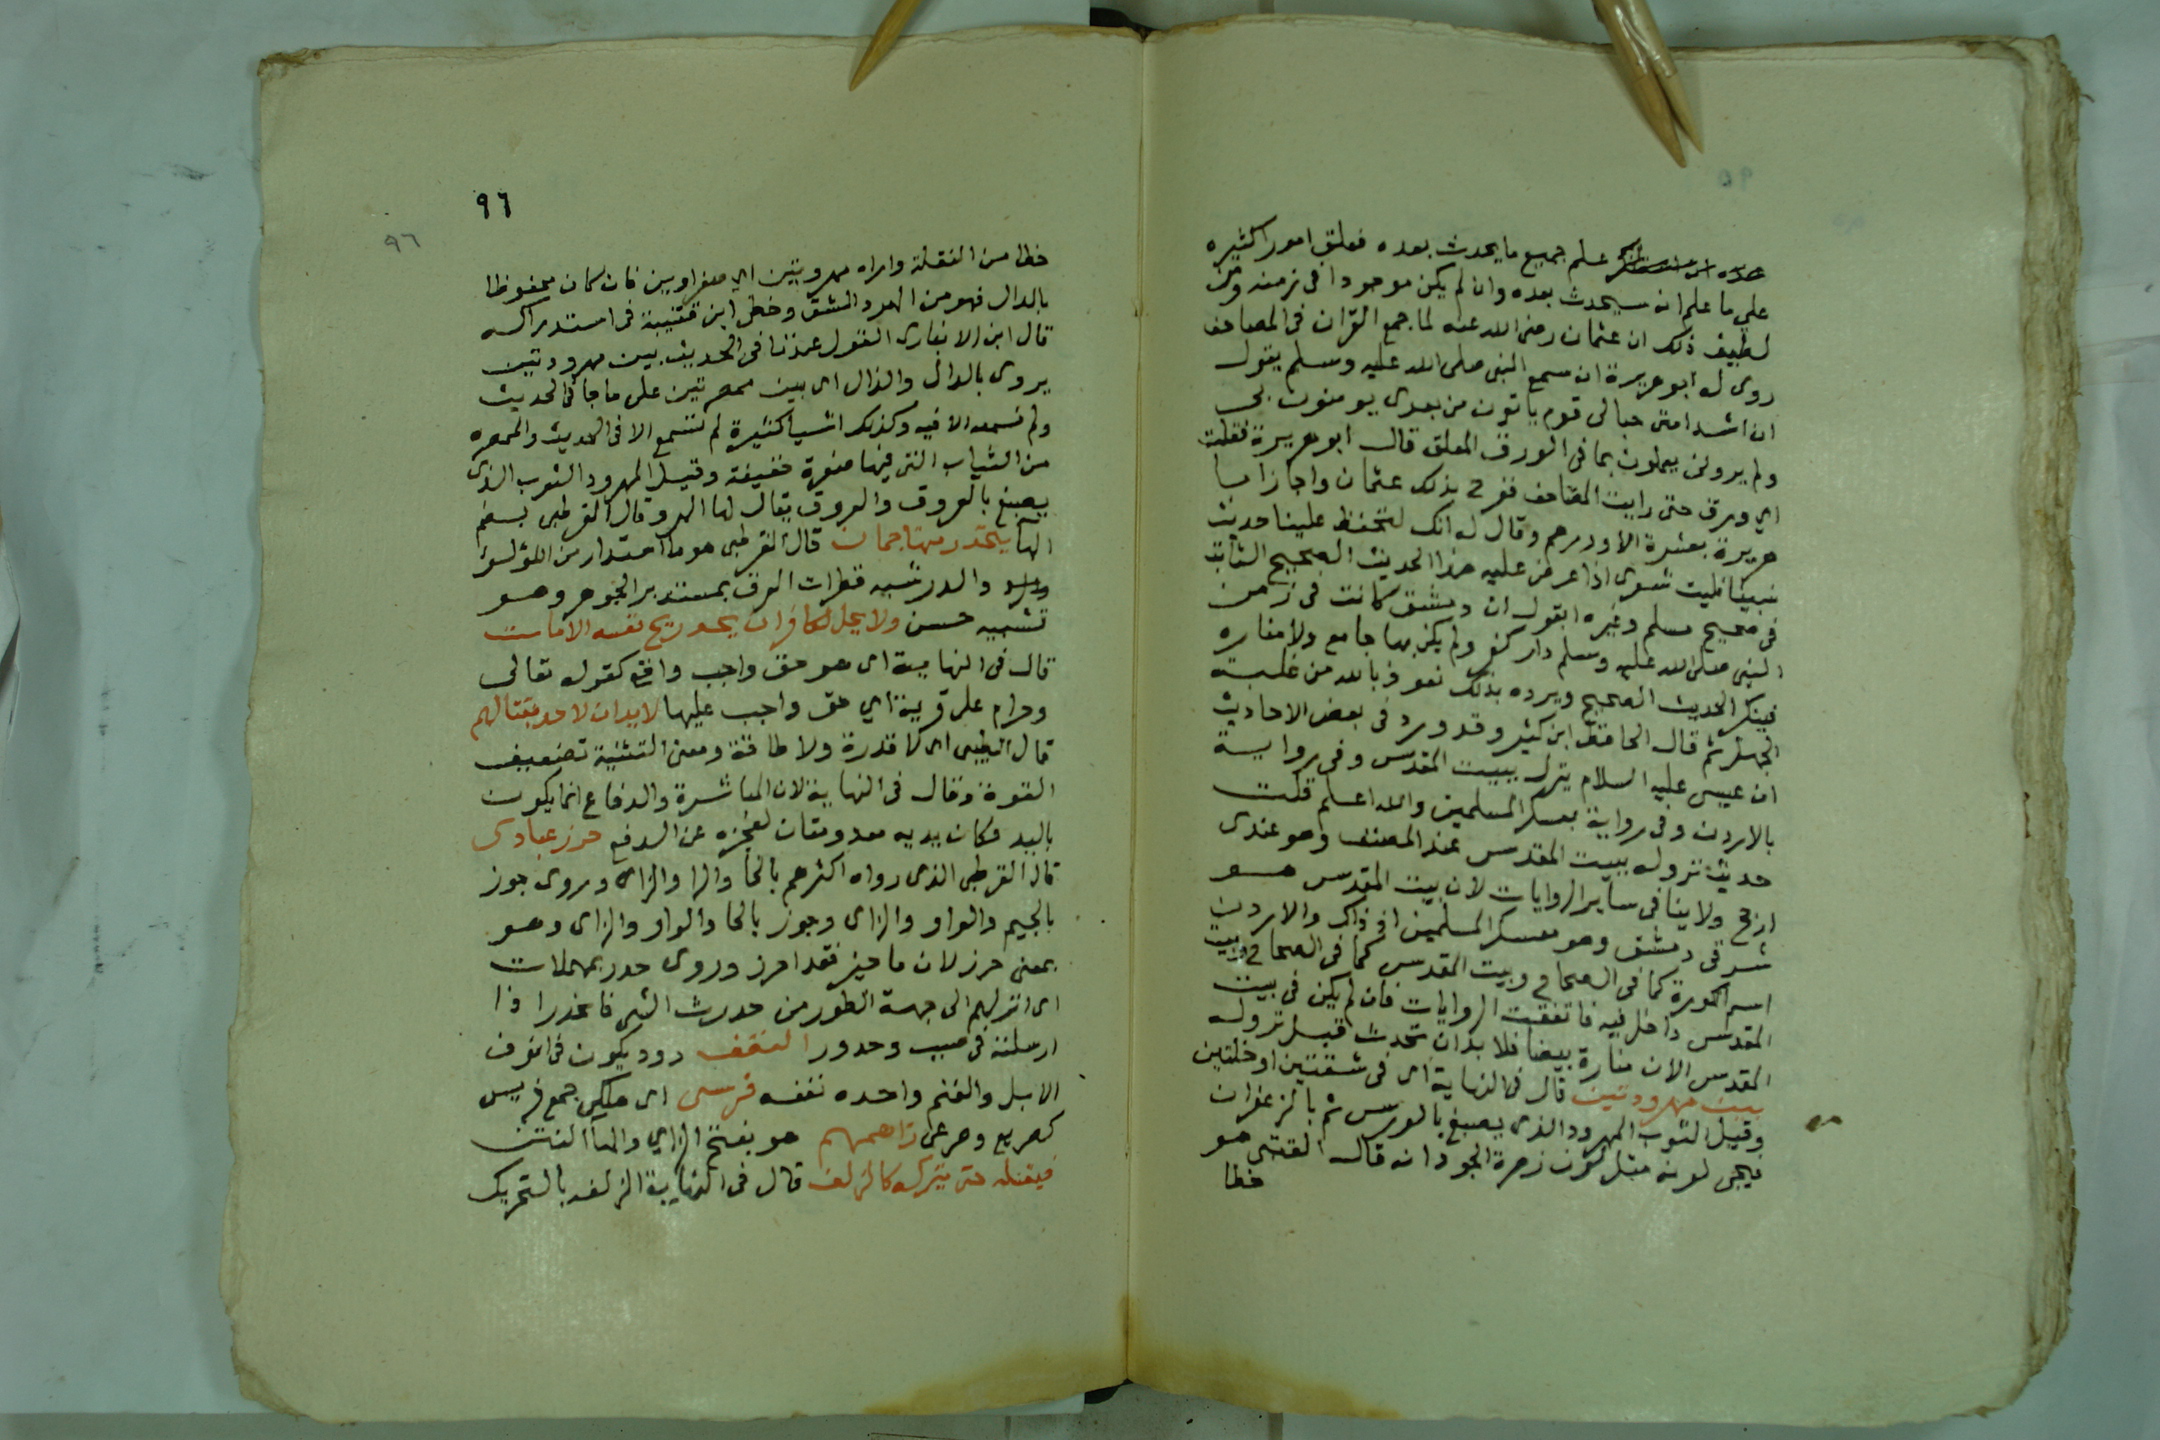 علم جميع ما يحدث بعده فعلق امورا كثيره
على ما علم انه سيحدث بعده وان لم يكن موجودا فى زمنه ومن
لطيف ذلك ان عثمان رضى الله عنه لما جمع القران فى المصاحف
روى له ابو هريرة انه سمع النبى صلى الله عليه وسلم يقول
ان اشد امتى حبا لى قوم ياتون من بعدى يومنون بى
ولم يرونى يعملون بما فى الورق المعلق قال ابو هريرة فقلت
اي ورق حتى رايت المصاحف ففرح بذلك عثمان واجاز ابا
هريرة بعشرة الاف درهم وقال له انك لتحفظ علينا حديث
نبينا فليت شعرى اذا عرض عليه هذا الحديث الصحيح الثابت
فى صحيح مسلم وغيره ايقول ان دمشق كانت فى زمن
النبى صلى الله عليه وسلم دار كفر ولم يكن بها جامع ولا مناره
فينكر الحديث الصحيح ويرده بذلك نعوذ بالله من غلبة
الجهل ثم قال الحافظ ابن كثير وقد ورد فى بعض الاحاديث
ان عيسى عليه السلام ينزل ببيت المقدس وفى رواية
بالاردن وفى رواية بعسكر المسلمين والله اعلم قلت
حديث نزوله ببيت المقدس عند المصنف وهو عندى
ارجح ولا ينافى ساير الروايات لان بيت المقدس هو
شرقى دمشق وهو معسكر المسلمين اذ ذاك والاردن
اسم الكورة كما فى الصحاح وبيت المقدس كما فى الصحاح وبيت
المقدس داخل فيه فاتفقت الروايات فان لم يكن فى بيت
المقدس الان منارة بيضا فلا بد ان تحدث قبل نزوله
بين مهرودتين قال فى النهاية اى فى شقتين او حلتين
وقيل الثوب المهرود الذى يصبغ بالورس ثم بالزعفران
فيجى لونه مثل لون زهرة الحوذانه قال القتبى هو
خطا
٩٦
٩٦
خطا من النقلة واراه مهروتين اي صفراوين فان كان محفوظا
بالدال فهو من الهرد الشق وخطى ابن قتيبة فى استدراكه
قال ابن الانبارى القول عندنا فى الحديث بين مهرودتين
يروى بالدال والذال اى بين ممصرتين على ما جا فى الحديث
ولم نسمعه الا فيه وكذلك اشيا كثيرة لم تسمع الا فى الحديث والممصره
من الثياب التى فيها صفرة خفيفة وقيل المهرود الثوب الذى
يصبغ بالعروق والعروق يقال لها الهرد وقال القرطبى بضم
الها يتحدر منها جمان قال القرطبى هو ما استدار من اللؤلؤ
والدر شبه قطرات العرق بمستدير الجوهر وهو
تشبيه حسن ولا يحل لكافر ان يجد ريح نفسه الا مات
قال فى النهاية اى هو حق واجب واقع كقوله تعالى
وحرام على قرية اي حق واجب عليها لا يدان لاحد بقتالهم
قال الطيبى اى لا قدرة ولا طاقة ومعنى التثنية تضعيف
القوة وقال فى النهاية لان المباشرة والدفاع انما يكون
باليد فكان يديه معدومتان لعجزه عن الدفع حرز عبادى
قال القرطبى الذى رواه اكثرهم بالحا والرا والزاى وروى جوز
بالجيم والواو والزاى وحوز بالحا والواو والزاى وهو
بمعنى حرز لان ما حيز فقد احرز وروى حدر بمهملات
اى انزلهم الى جهة الطور من حدرت الشى فانحدر اذا
ارسلته فى صبب وحدور النغف دود يكون فى انوف
الابل والغنم واحده نغفه فرسى اى هلكى جمع فريس
كصريع وصرعى زهمهم هو بفتح الزاي والها النتن
فيغسله حتى يتركه كالزلفه قال فى النهاية الزلفه بالتحريك